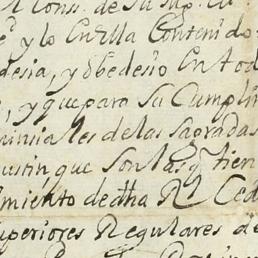 l Cons. de Su Mag. en
y lo en ella Contenido
desia, y obedesio en tod
, y que para Su Cumplim
minsiales de las Sagradas
gustin que Son las q tien
miento de dha Rl Ced
uperiores Regulares de